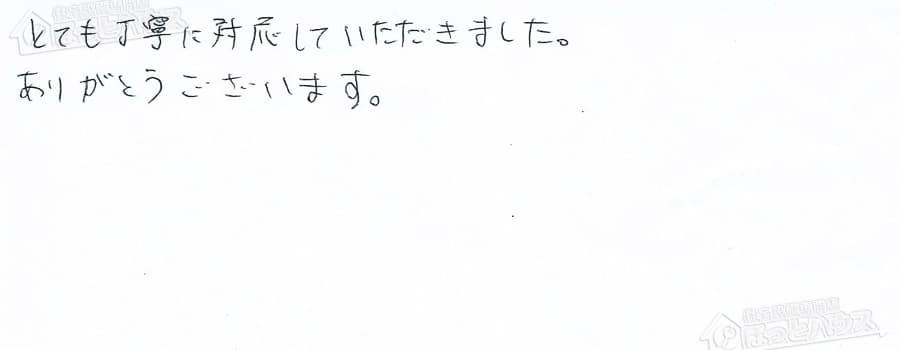 とても丁寧に対応していただきました。
ありがとうございます。
ほっとハウス